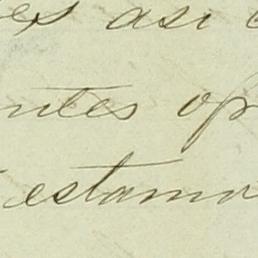 es asi c
ntes op
estamo